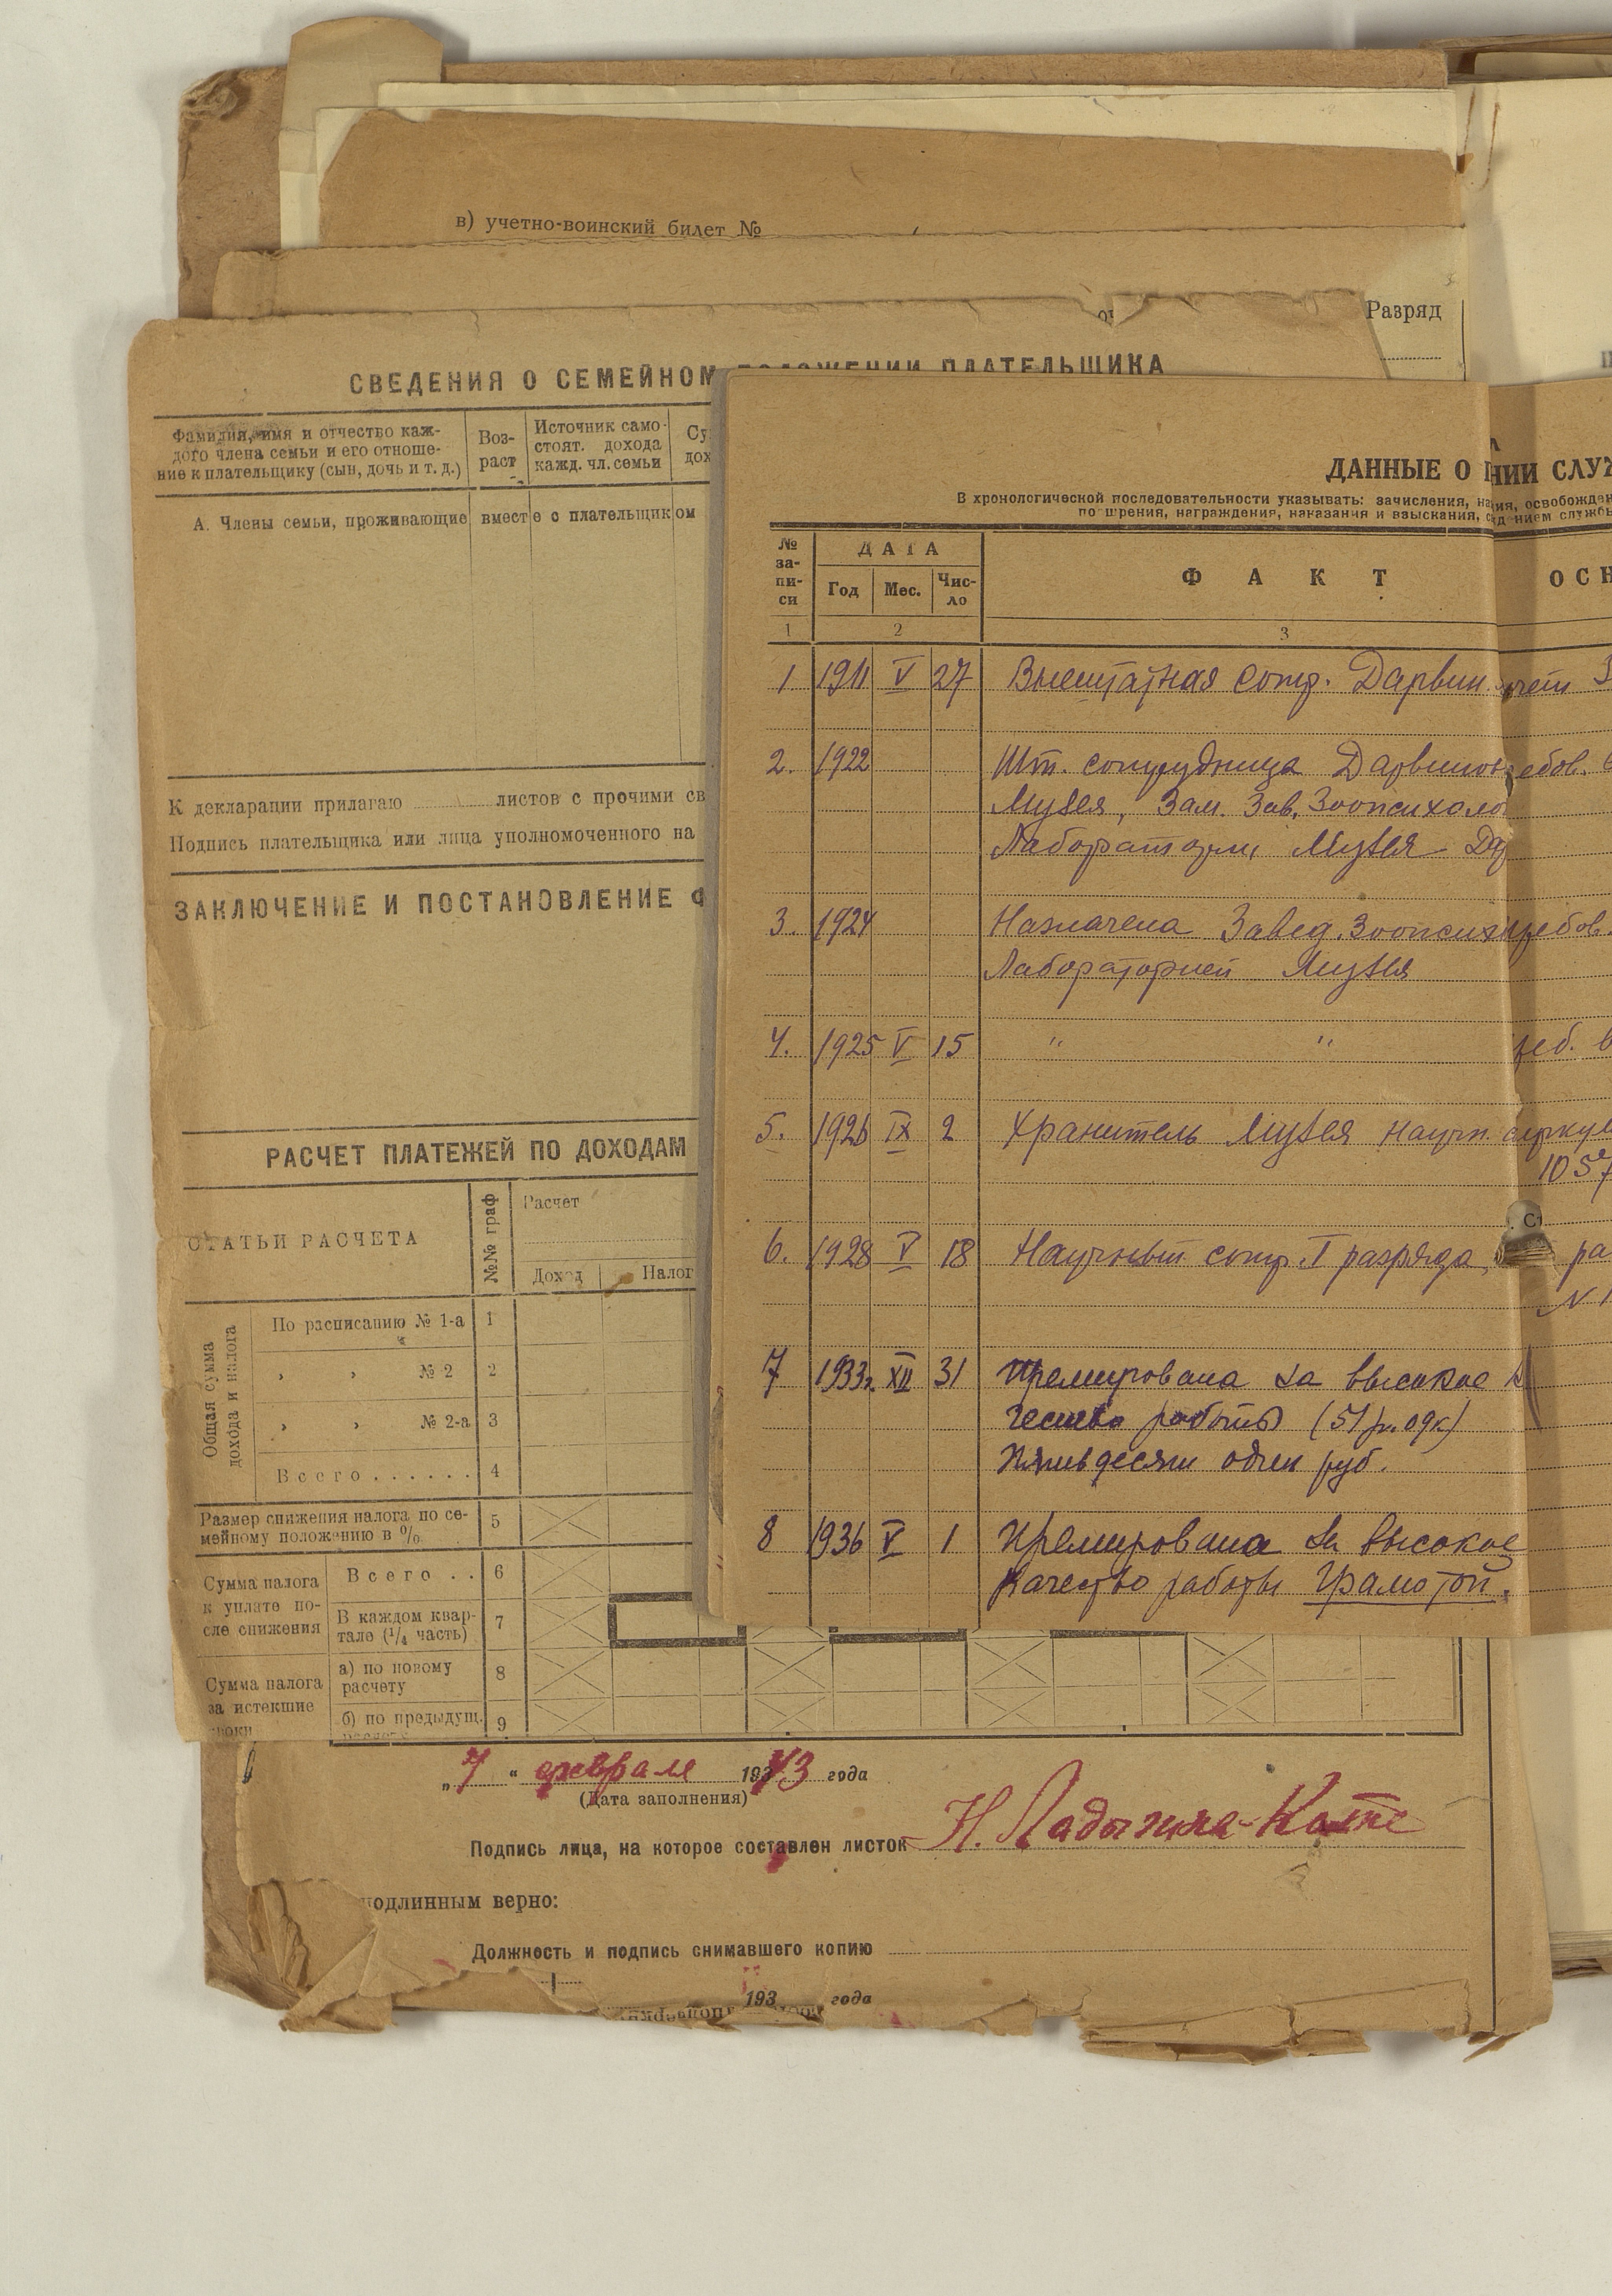 в) учетно-воинский билет №
Разряд
СВЕДЕНИЯ О СЕМЕЙНОМ ПОЛОЖЕНИИ ПЛАТЕЛЬЩИКА
Фамилия, имя и отчество каж-
дого члена семьи и его отноше-
ние к плательщику (сын, дочь и т. д.)
Воз-
раст
Источник само-
стоят. дохода
кажд. чл. семьи
Су
дох
А. Члены семьи, проживающие вместе с плательщиком
К декларации прилагаю листов с прочими св
Подпись плательщика или лица уполномоченного на
ЗАКЛЮЧЕНИЕ И ПОСТАНОВЛЕНИЕ Ф
РАСЧЕТ ПЛАТЕЖЕЙ ПО ДОХОДАМ
СТАТЬИ РАСЧЕТА
№№ граф
Расчет
Доход
Налог
Общая сумма
дохода и налога
По расписанию № 1-а 1
" " № 2 2
" " № 2-а 3
Всего . . . . . . 4
Размер снижения налога по се-
мейному положению в % 5
Сумма налога
к уплате по-
сле снижения
Всего . . 6
В каждом квар-
тале (1/4 часть) 7
Сумма налога
за истекшие
сроки
а) по новому
расчету 8
б) по предыдущ. 9
ДАННЫЕ О
НИИ СЛУЖ
В хронологической последовательности указывать: зачисления, на
ия, освобожден
поощрения, награждения, наказания и взыскания, с
нием службы
№
за-
пи-
си
ДАТА
Год
Мес.
Чис-
ло
ФАКТ
ОСН
1 2 3
1 1911 V 27 Внештатная сотр. Дарвин.
2. 1922 Шт. сотрудница Дарвинов
Музея, Зам. Зав. Зоопсихоло
Лаборатории Музея Да
3. 1924 Назначена Завед. Зоопсих
Лабораторией Музея
4. 1925 V 15 " "
5. 1926 IX 2 Хранитель Музея Научн.
1057
6. 1928 V 18 Научный сотр. I разряда,
7 1933г. XII 31 Премирована за высокое ка
чество работы (51 р. 09к.)
Пятьдесят один руб.
8 1936 V 1 Премирована за высокое
качество работы Грамотой.
„7“ февраля 1943 года
(Дата заполнения)
Подпись лица, на которое составлен листок Н. Ладыгина-Котс
подлинным верно:
Должность и подпись снимавшего копию
193 года